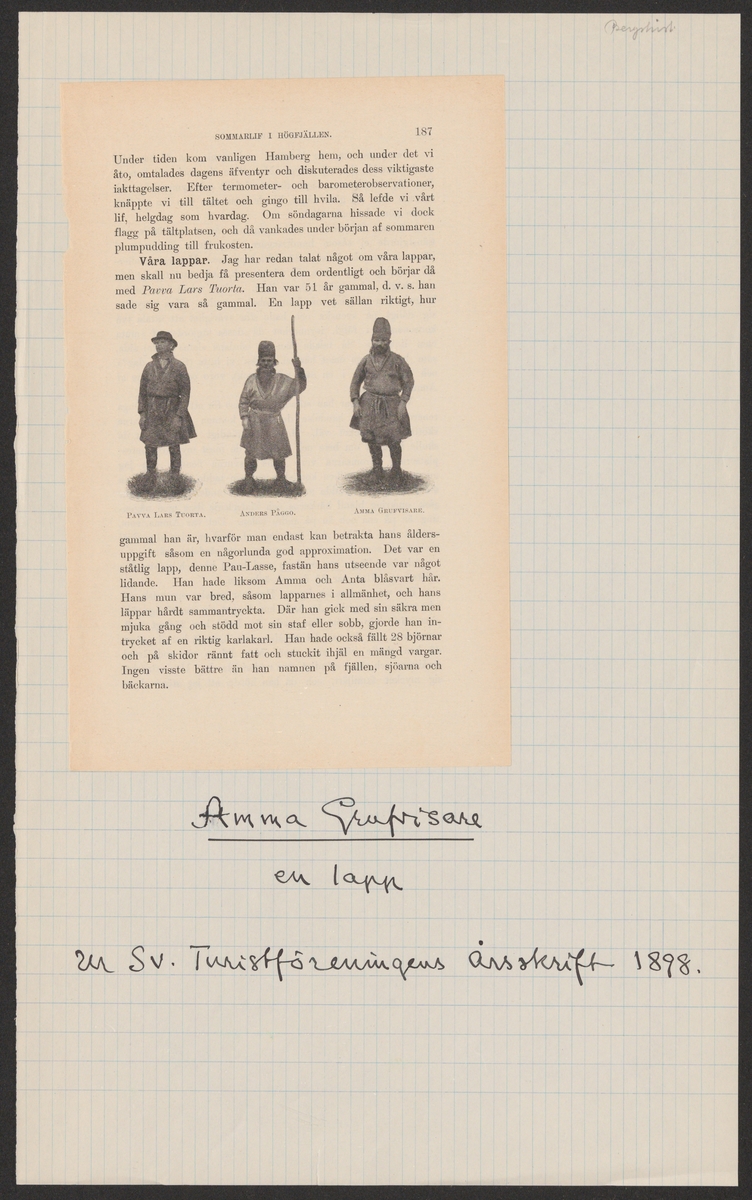 Bergshist
SOMMARLIF I HÖGFJÄLLEN. 187
Under tiden kom vanligen Hamberg hem, och under det vi
åto, omtalades dagens äfventyr och diskuterades dess viktigaste
iakttagelser. Efter termometer- och barometerobservationer,
knäppte vi till tältet och gingo till hvila. Så lefde vi vårt
lif, helgdag som hvardag. Om söndagarna hissade vi dock
flagg på tältplatsen, och då vankades under början af sommaren
plumpudding till frukosten.
Våra lappar. Jag har redan talat något om våra lappar,
men skall nu bedja få presentera dem ordentligt och börjar då
med Pavva Lars Tuorta. Han var 51 år gammal, d. v. s. han
sade sig vara så gammal. En lapp vet sällan riktigt, hur
PAVVA LARS TUORTA. ANDERS PÅGGO. AMMA GRUFVISARE.
gammal han är, hvarför man endast kan betrakta hans ålders-
uppgift såsom en någorlunda god approximation. Det var en
ståtlig lapp, denne Pau-Lasse, fastän hans utseende var något
lidande. Han hade liksom Amma och Anta blåsvart hår.
Hans mun var bred, såsom lapparnes i allmänhet, och hans
läppar hårdt sammantryckta. Där han gick med sin säkra men
mjuka gång och stödd mot sin staf eller sobb, gjorde han in-
trycket af en riktig karlakarl. Han hade också fällt 28 björnar
och på skidor rännt fatt och stuckit ihjäl en mängd vargar.
Ingen visste bättre än han namnen på fjällen, sjöarna och
bäckarna.
Amma Grufvisare
en lapp
ur Sv. Turistföreningens årsskrift 1898.